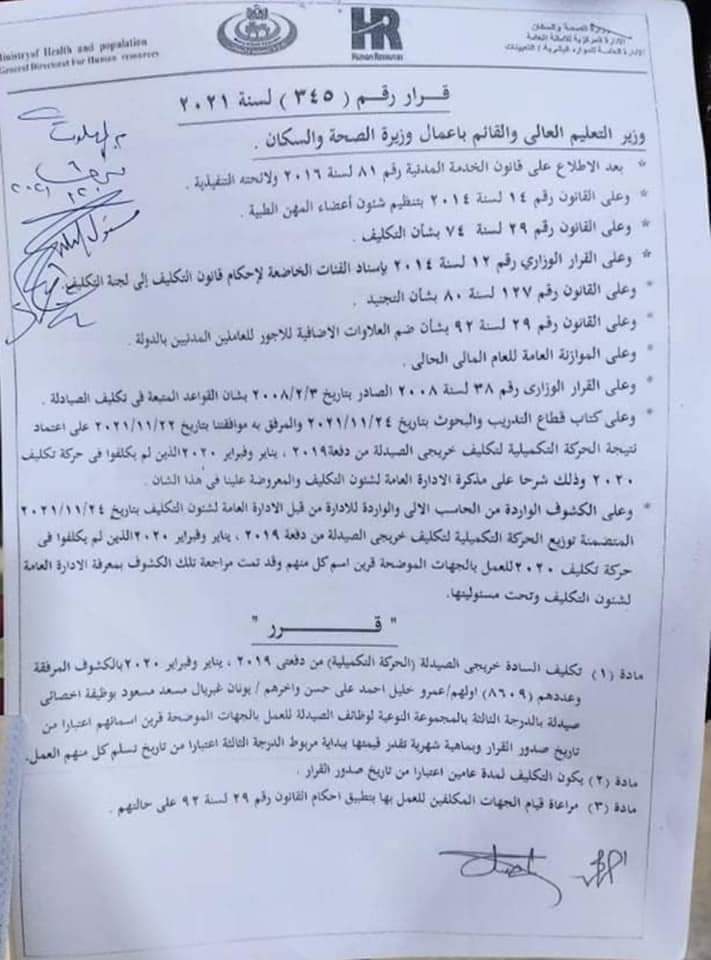 Ministry of Health and population
General Directorat For Human resources
HR
Human Resources
وزارة الصحة والسكان
الإدارة المركزية للأمانة العامة
الإدارة العامة للموارد البشرية / التعيينات
قرار رقم ( ٣٤٥ ) لسنة ٢٠٢١
وزير التعليم العالى والقائم باعمال وزيرة الصحة والسكان .
* بعد الإطلاع على قانون الخدمة المدنية رقم ٨١ لسنة ٢٠١٦ ولائحته التنفيذية .
* وعلى القانون رقم ١٤ لسنة ٢٠١٤ بتنظيم شئون أعضاء المهن الطبية .
* وعلى القانون رقم ٢٩ لسنة ٧٤ بشأن التكليف .
* وعلى القرار الوزاري رقم ١٢ لسنة ٢٠١٤ بإسناد الفئات الخاضعة لإحكام قانون التكليف إلى لجنة التكليف.
* وعلى القانون رقم ١٢٧ لسنة ٨٠ بشأن التجنيد .
* وعلى القانون رقم ٢٩ لسنة ٩٢ بشأن ضم العلاوات الاضافية للاجور للعاملين المدنيين بالدولة .
* وعلى الموازنة العامة للعام المالى الحالى .
* وعلى القرار الوزارى رقم ٣٨ لسنة ٢٠٠٨ الصادر بتاريخ ٢٠٠٨/٢/٣ بشان القواعد المتبعة فى تكليف الصيادلة .
* وعلى كتاب قطاع التدريب والبحوث بتاريخ ٢٠٢١/١١/٢٤ والمرفق به موافقتنا بتاريخ ٢٠٢١/١١/٢٢ على اعتماد
نتيجة الحركة التكميلية لتكليف خريجى الصيدلة من دفعة ٢٠١٩ ، يناير وفبراير ٢٠٢٠ الذين لم يكلفوا فى حركة تكليف
٢٠٢٠ وذلك شرحا على مذكرة الادارة العامة لشئون التكليف والمعروضة علينا فى هذا الشان .
* وعلى الكشوف الواردة من الحاسب الالى والواردة للادارة من قبل الادارة العامة لشئون التكليف بتاريخ ٢٠٢١/١١/٢٤
المتضمنة توزيع الحركة التكميلية لتكليف خريجى الصيدلة من دفعة ٢٠١٩ ، يناير وفبراير ٢٠٢٠ الذين لم يكلفوا فى
حركة تكليف ٢٠٢٠ للعمل بالجهات الموضحة قرين اسم كل منهم وقد تمت مراجعة تلك الكشوف بمعرفة الادارة العامة
لشئون التكليف وتحت مسئوليتها.
" قـــــرر "
مادة (١) تكليف السادة خريجى الصيدلة (الحركة التكميلية) من دفعتى ٢٠١٩ ، يناير وفبراير ٢٠٢٠ بالكشوف المرفقة
وعددهم (٨٦٠٩) اولهم/ عمرو خليل احمد على حسن واخرهم / يونان غبريال مسعد مسعود بوظيفة اخصائى
صيدلة بالدرجة الثالثة بالمجموعة النوعية لوظائف الصيدلة للعمل بالجهات الموضحة قرين اسمائهم اعتبارا من
تاريخ صدور القرار وبماهية شهرية تقدر قيمتها ببداية مربوط الدرجة الثالثة اعتبارا من تاريخ تسلم كل منهم العمل.
مادة (٢) يكون التكليف لمدة عامين اعتبارا من تاريخ صدور القرار .
مادة (٣) مراعاة قيام الجهات المكلفين للعمل بها بتطبيق احكام القانون رقم ٢٩ لسنة ٩٢ على حالتهم .